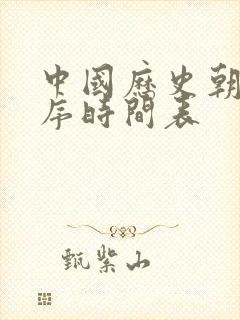 中國歷史朝
序時間表
甄紫山